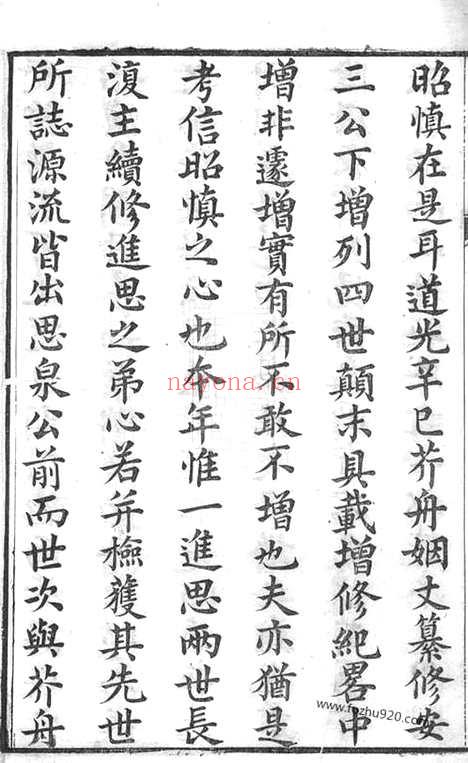 昭慎在是耳道光辛巳芥舟姻丈纂修安
三公下增列四世顛末具載增修紀畧中
增非遽增實有所不敢不增也夫亦猶是
考信昭慎之心也夲年惟一進思兩世長
復主續修進思之弟心若并檢獲其先世
所誌源流皆出思泉公前而世次與芥舟
nayona.cn
www.fozhu920.com